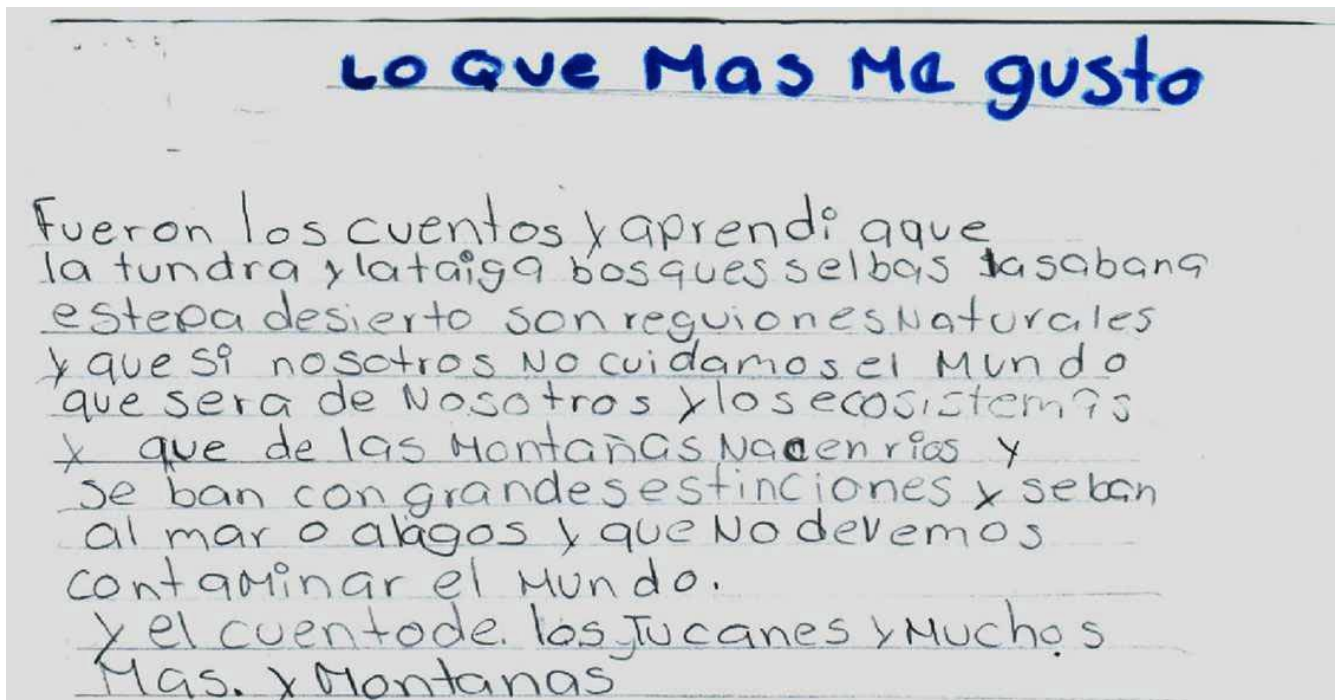 Lo que Mas Me gusto
Fueron los cuentos y aprendi aque
la tundra y lataiga bosques selbas lasabana
estepa desierto son reguiones Naturales
y que si nosotros No cuidamos el Mundo
que sera de Nosotros y los ecosistemas
y que de las Montañas Nacen rios y
se ban con grandes estinciones y seban
al mar o alagos y que No devemos
contaminar el Mundo.
y el cuentode. los Tucanes y Muchos
Mas. y Montanas